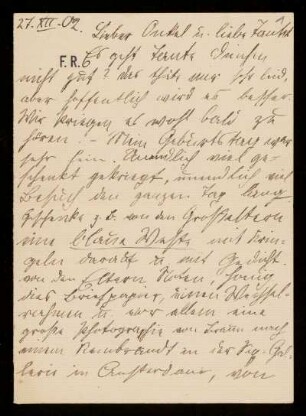 27. XII. 02.
Lieber Onkel u. liebe Tante!
F.R.6
Es geht Tante Dinchen
nicht gut? das thäte mir sehr leid,
aber hoffentlich wird es besser.
Wir kriegen es wohl bald zu
hören. - Mein Geburtstag war
sehr fein. Unendlich viel ge-
schenkt gekriegt, unendlich viel
Besuch den ganzen Tag lang
Geschenke z. B. von den Großeltern
eine blaue Weste mit
geln darauf u. mit Gedicht
von den Eltern Noten, Honig
dies Briefpapier, einen Wechsel-
rahmen u. vor allem eine
große Photographie von Braun nach
einem Rembrandt in der Six-Gal-
lerie in Amsterdam, von